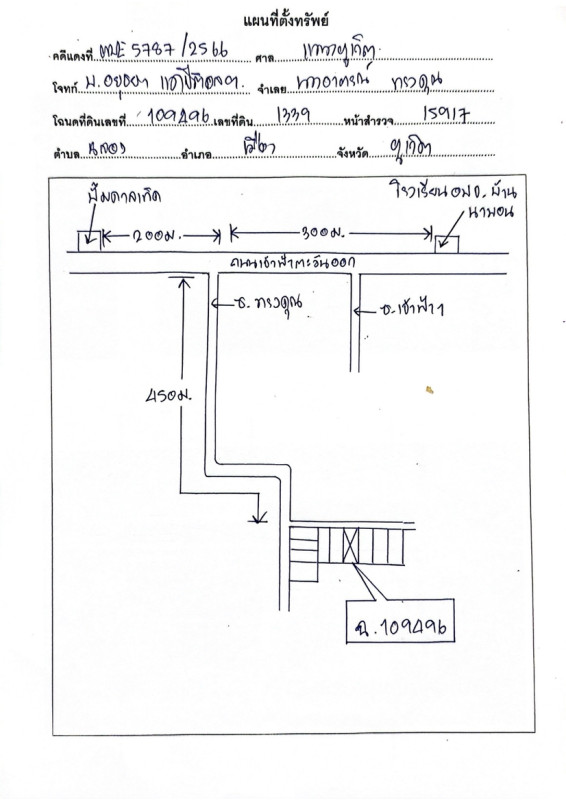 แผนที่ตั้งทรัพย์
คดีแดงที่ ผบE 5787/2566 ศาล แขวงภูเก็ต
โจทก์ บ.อยุธยา แคปปิตอลฯ จำเลย ทรงคุณ
โฉนดที่ดินเลขที่ 109496 เลขที่ดิน 1339 หน้าสำรวจ 15917
ตำบล ฉลอง อำเภอ เมือง จังหวัด ภูเก็ต
ปั๊มคาลเท็ก
โรงเรียน อบจ. บ้าน
นาบอน
200ม.
300ม.
ถนนเจ้าฟ้าตะวันออก
ซ. ทรงคุณ
ซ. เจ้าฟ้า 1
450ม.
ฉ. 109496